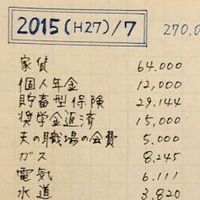 2015(H27)/7 270,0
家賃 64.000
個人年金 12,000
貯蓄型保険 29.144
奨学金返済 15,000
夫の職場の会費 5.000
ガス 8.245
電気 6.111
水道 3.820